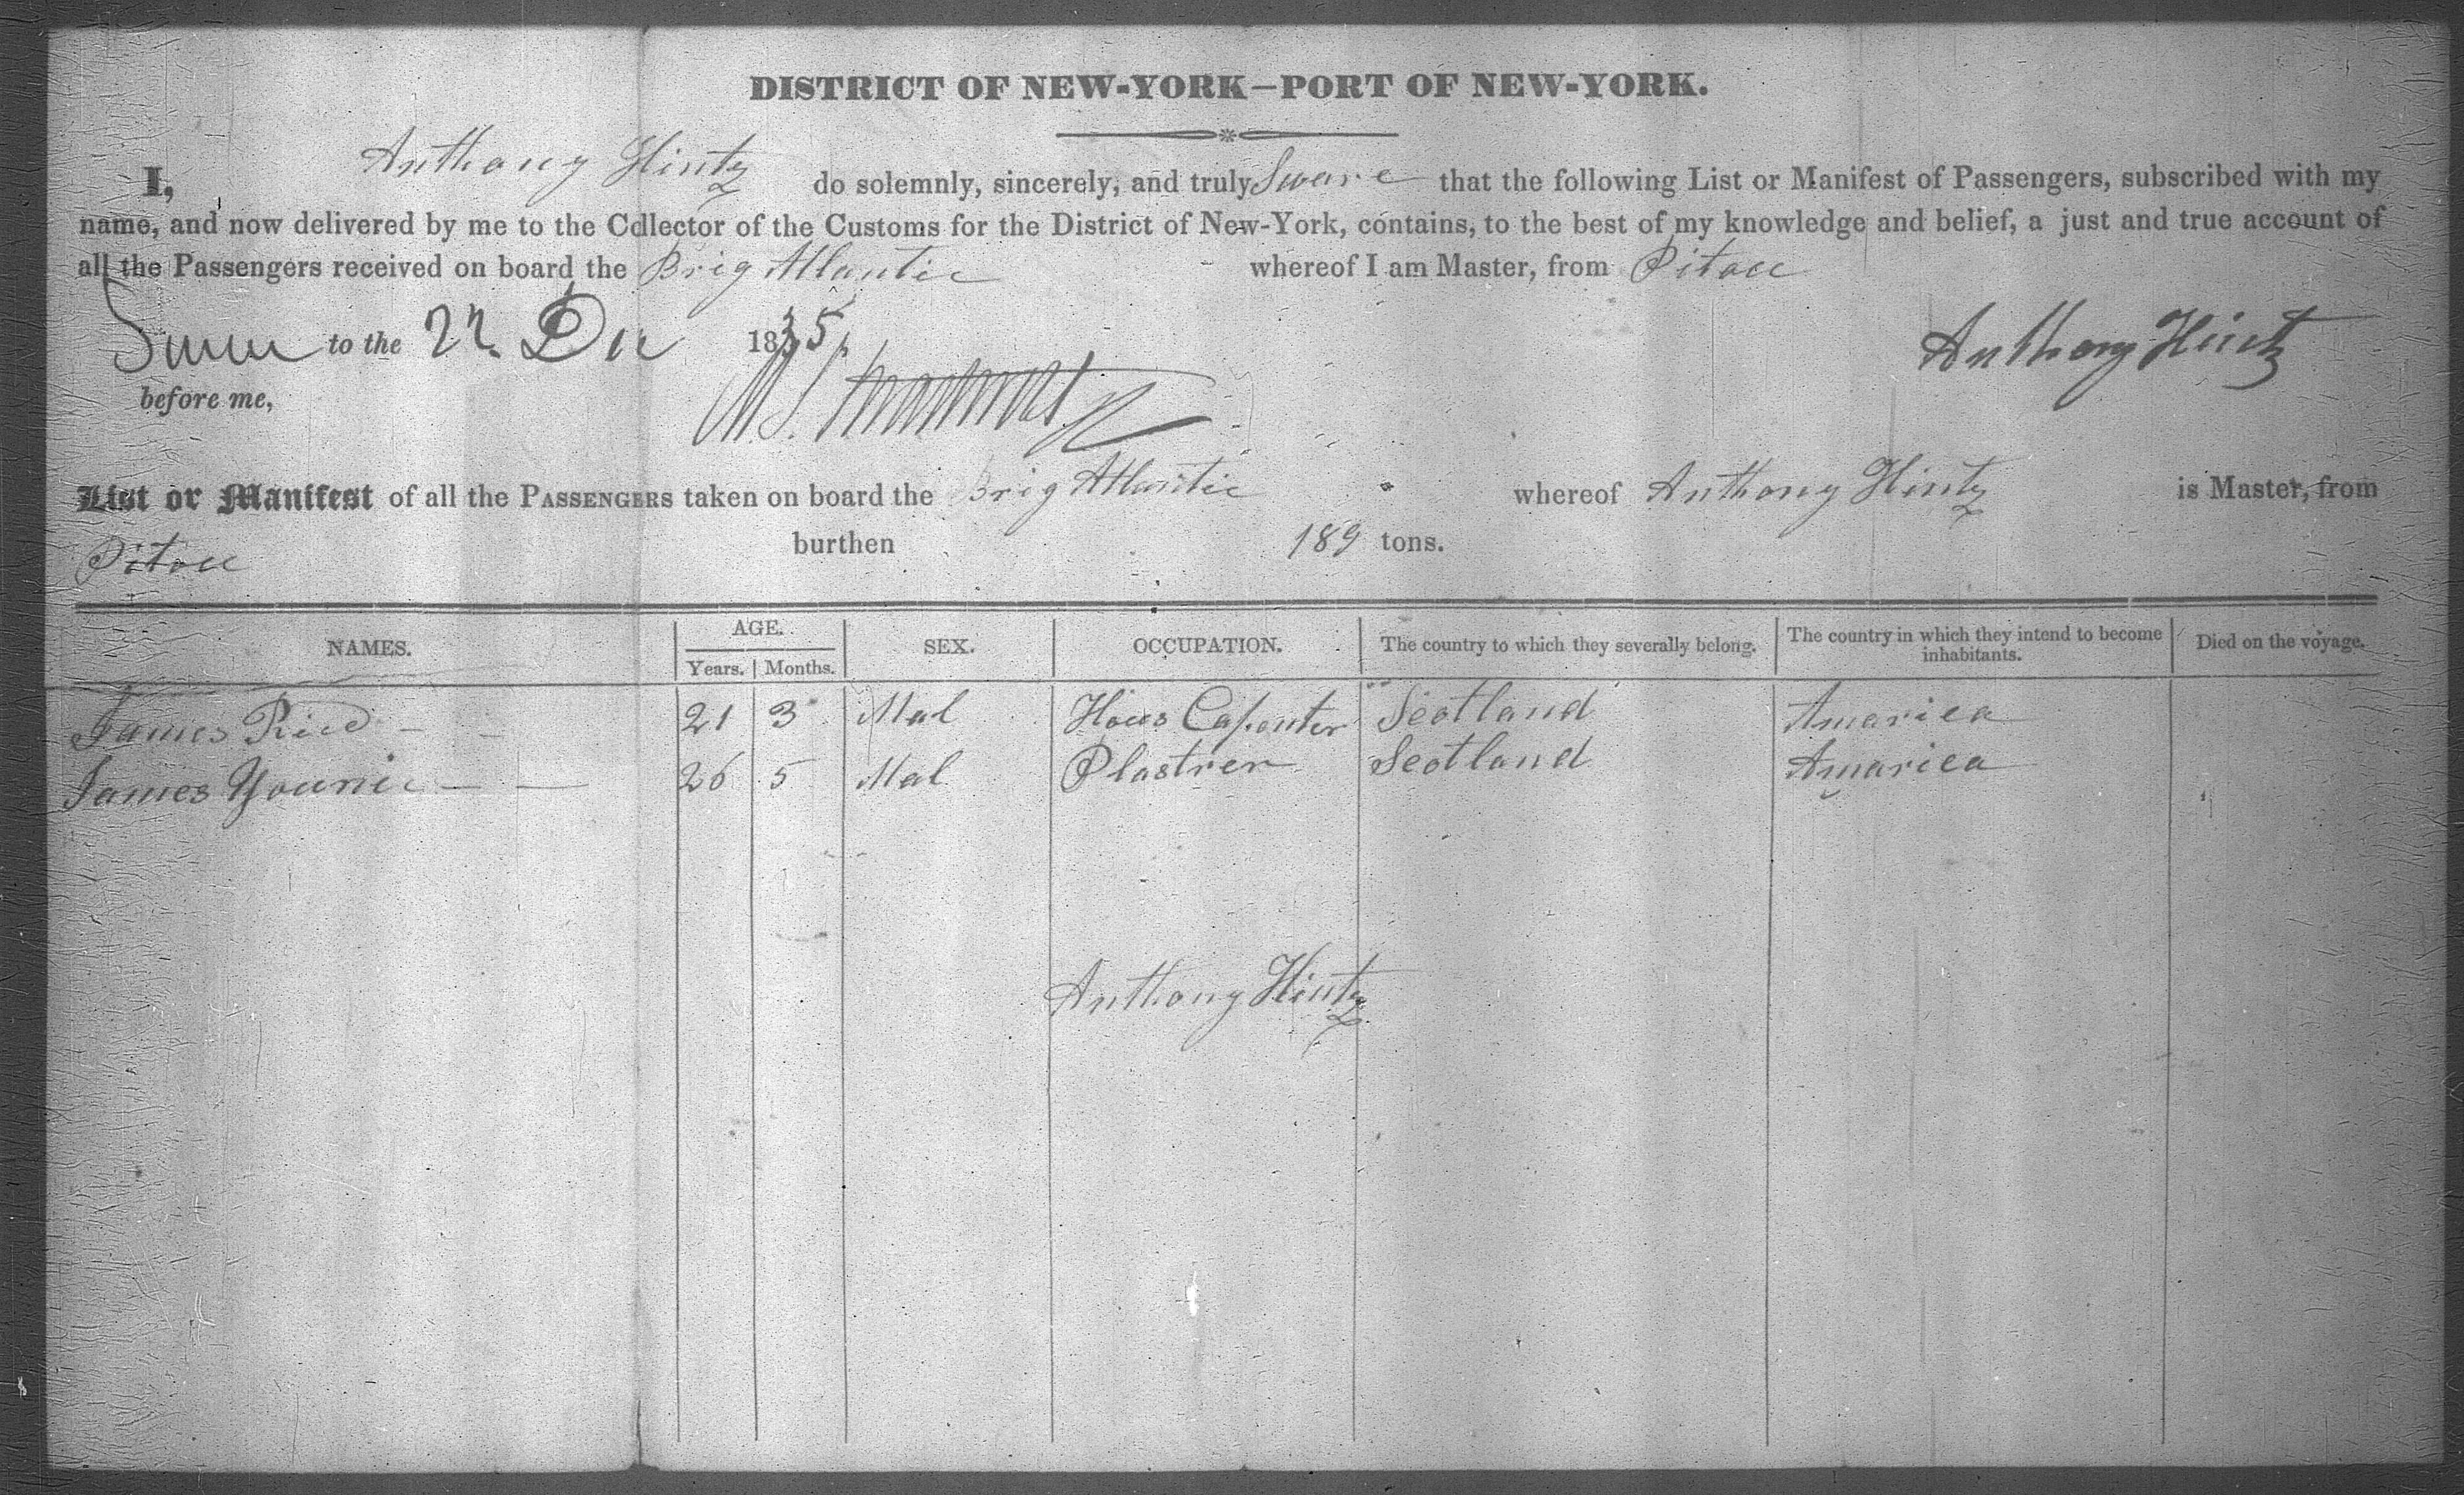 DISTRICT OF NEW-YORK—PORT OF NEW-YORK.
I, Anthony Hintz do solemnly, sincerely, and truly Sware that the following List or Manifest of Passengers, subscribed with my
name, and now delivered by me to the Collector of the Customs for the District of New-York, contains, to the best of my knowledge and belief, a just and true account of
all the Passengers received on board the Brig Atlantic whereof I am Master, from Pitou
Sworn to the 22. Dec 1835
Anthony Hintz
before me,
List or Manifest of all the PASSENGERS taken on board the Brig Atlantic whereof Anthony Hintz is Master, from
Pitou burthen 189 tons.
NAMES. AGE. Years. Months. SEX. OCCUPATION. The country to which they severally belong. The country in which they intend to become inhabitants. Died on the voyage.
James Ried 21 3 Mal Hous Capenter Scotland Amarica
James 26 5 Mal Plastrer Scotland Amarica
Anthony Hintz